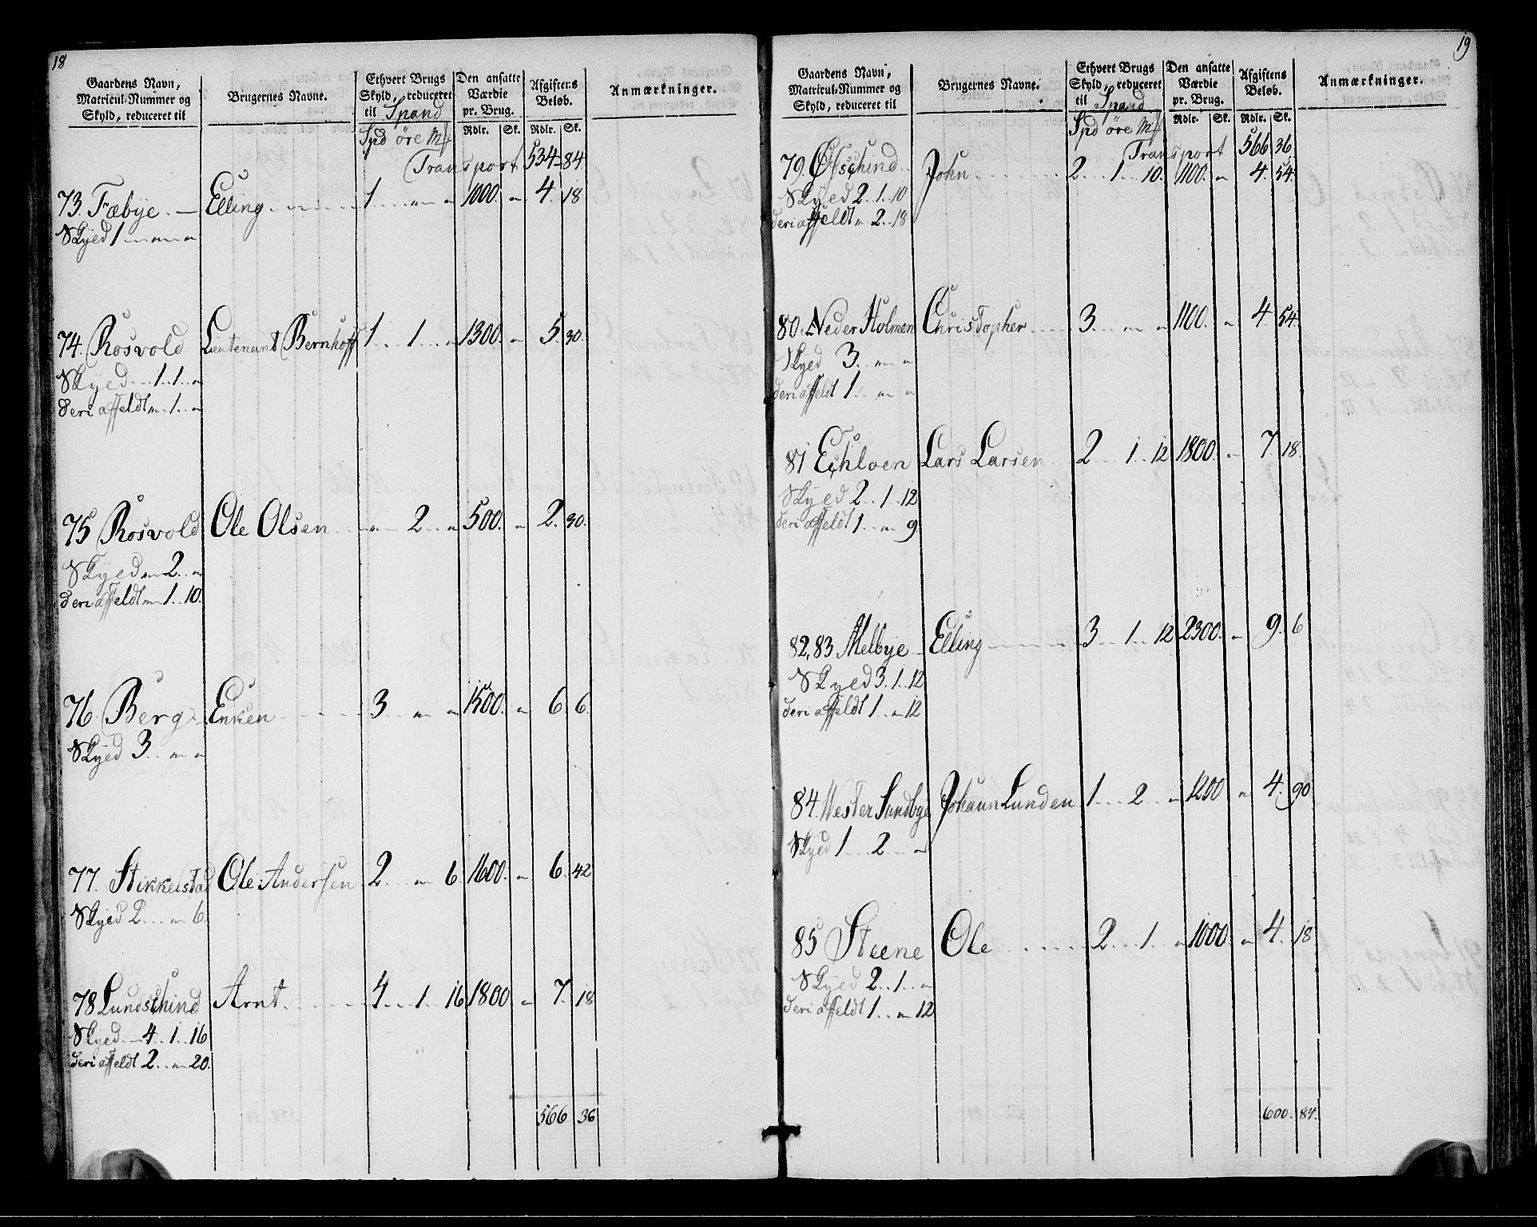 18
Gaardens Navn, Matricul-Nummer og Skyld, reduceret til
Brugernes Navne.
Ethvert Brugs Skyld, reduceret til Spand
Den ansatte Værdie pr. Brug.
Afgiftens Beløb.
Anmærkninger.
Rdlr. Sk. Rdlr. Sk.
Spd öre M
Transport 534 84
73. Fæbye Elling 1 " " 1000. " 4. 18
Skyed 1 " "
74. Rosvold Lieutenant Bernhoff 1 1 " 1300. " 5. 30.
Skyed 1. 1. "
deri affeldt " 1 "
75 Rosvold Ole Olsen " 2 " 500. " 2. 30.
Skyed " 2 "
deri affeldt " 1. 10.
76 Berg Enken 3 " " 1500. " 6 6.
Skyed 3 " "
77. Stikkelstad Ole Andersen 2 " 6. 1600. " 6. 42
Skyed 2 " 6.
78 Lundschind Arnt 4 1 16 1800 " 7. 18
Skyed 4. 1. 16
deri affeldt 2 " 20.
566 36
19
Gaardens Navn, Matricul-Nummer og Skyld, reduceret til
Brugernes Navne.
Ethvert Brugs Skyld, reduceret til Spand
Den ansatte Værdie pr. Brug.
Afgiftens Beløb.
Anmærkninger.
Rdlr. Sk. Rdlr. Sk.
Spd öre M
Transport 566 36
79. John 2 1 10. 1100. " 4. 54
Skyed 2. 1. 10
deri affeldt " 2. 13
80. Neder Holmen Christopher 3 " " 1100. " 4 54.
Skyed 3 " "
deri affeldt 1 " "
81 Echloen Lars Larsen 2 1 12 1800. " 7 18.
Skyed 2. 1. 12
deri affeldt 1 " 9
82, 83 Melbye Elling 3 1 12 2300. " 9. 6
Skyed 3. 1. 12
deri affeldt 1 " 12
84. Wester Sundbye Johann Lunden 1 2 " 1200 " 4. 90
Skyed 1 2 "
85 Steene Ole 2 1 " 1000 " 4. 18
Skyed 2. 1. "
deri affeldt 1 " 12
600. 84.